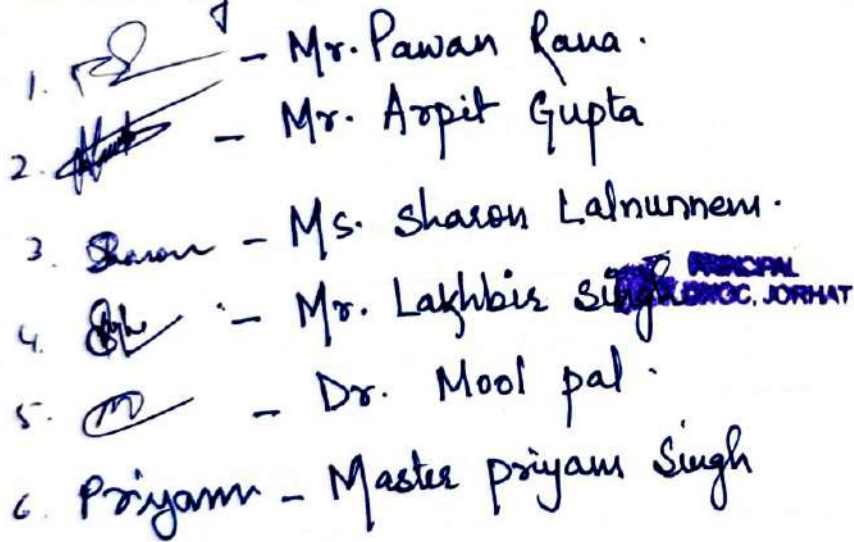 1. - Mr. Pawan Rana.
2. - Mr. Arpit Gupta
3. Sharon - Ms. Sharon Lalnunnem.
4. - Mr. Lakhbir Singh
PRINCIPAL
JORHAT
5. - Dr. Mool pal.
6. Priyam - Master priyam Singh